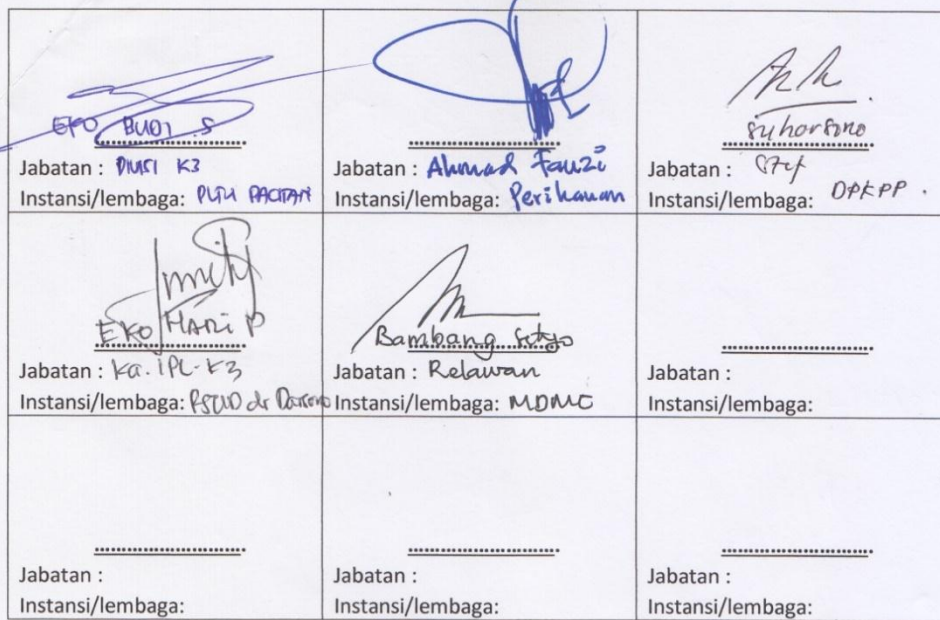 EKO BUDI .S
Jabatan : DIVISI K3
Instansi/lembaga: PLTU PACITAN
Jabatan : Ahmad Fauzi
Instansi/lembaga: Perikanan
Suharsono
Jabatan : Staf
Instansi/lembaga: DPKPP .
EKO HARI P
Jabatan : Ka. IPL-K3
Instansi/lembaga: RSUD dr Darsono
Bambang Setyo
Jabatan : Relawan
Instansi/lembaga: MDMC
Jabatan :
Instansi/lembaga:
Jabatan :
Instansi/lembaga:
Jabatan :
Instansi/lembaga:
Jabatan :
Instansi/lembaga: